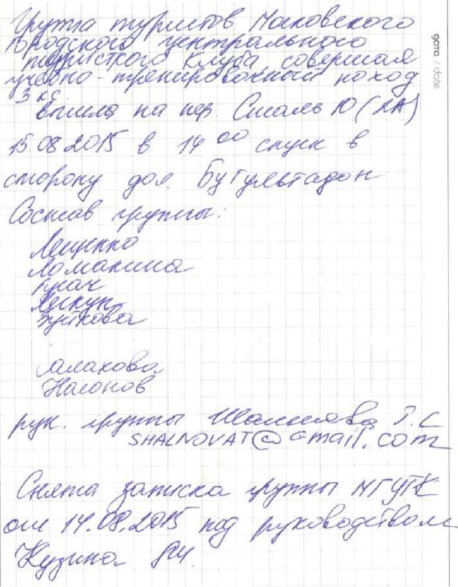 Группа туристов Московского
городского центрального
туристского клуба совершая
учебно-тренировочный поход
3 кс
вышла на пер. Сталь Ю (2А)
15.08.2015 в 14 00 спуск в
сторону дол. Бугультадон
Состав группы:
Лещенко
Ломакина
Грач
Зуйкова
Малахова
Нагонов
рук. группы Шалнова Т.С
SHALNOVAT@Gmail.com
Снята записка группы МГЦТК
от 14.08.2015 под руководством
Кузина
дата / date